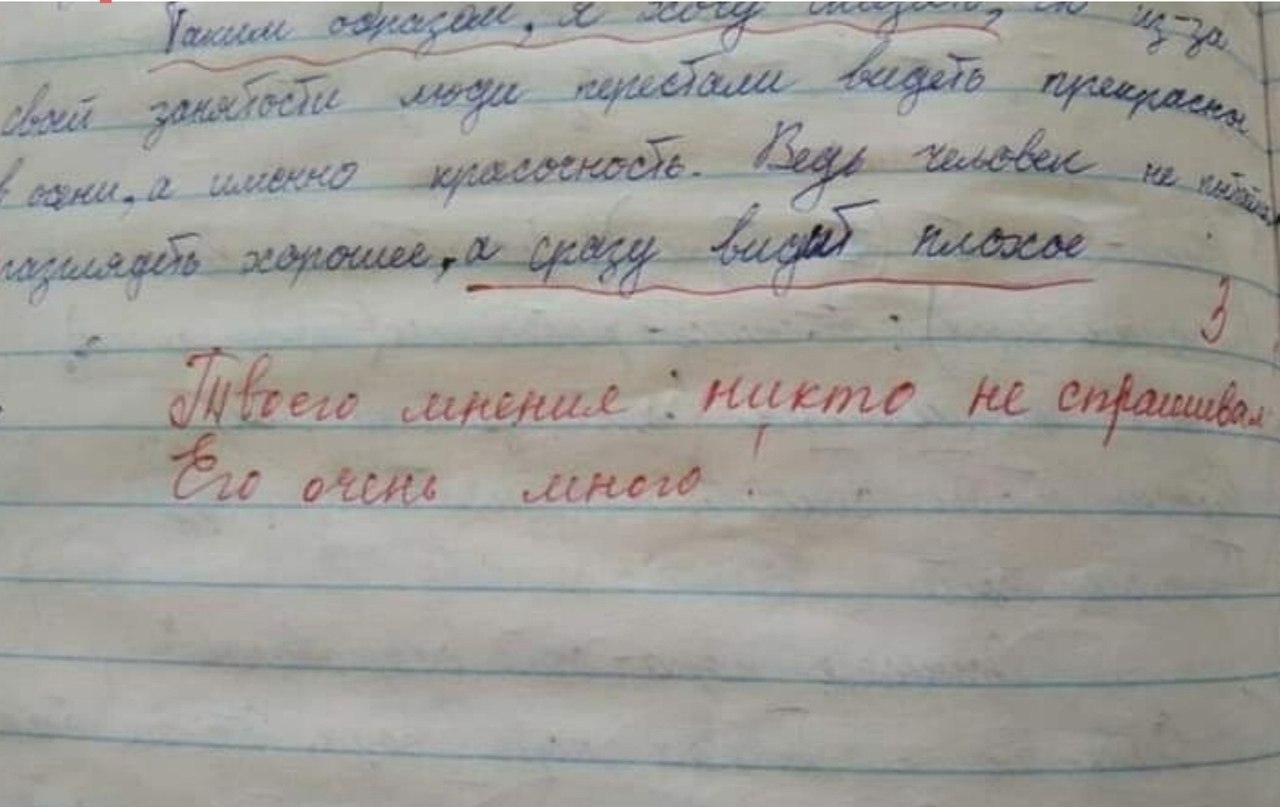 Таким образом, я хочу сказать, из-за
своей занятости люди перестали видеть
в осени, а именно красочность. Ведь человек не
разглядеть хорошее, а сразу видит плохое
3
Твоего мнения никто не спрашивал
Его очень много!